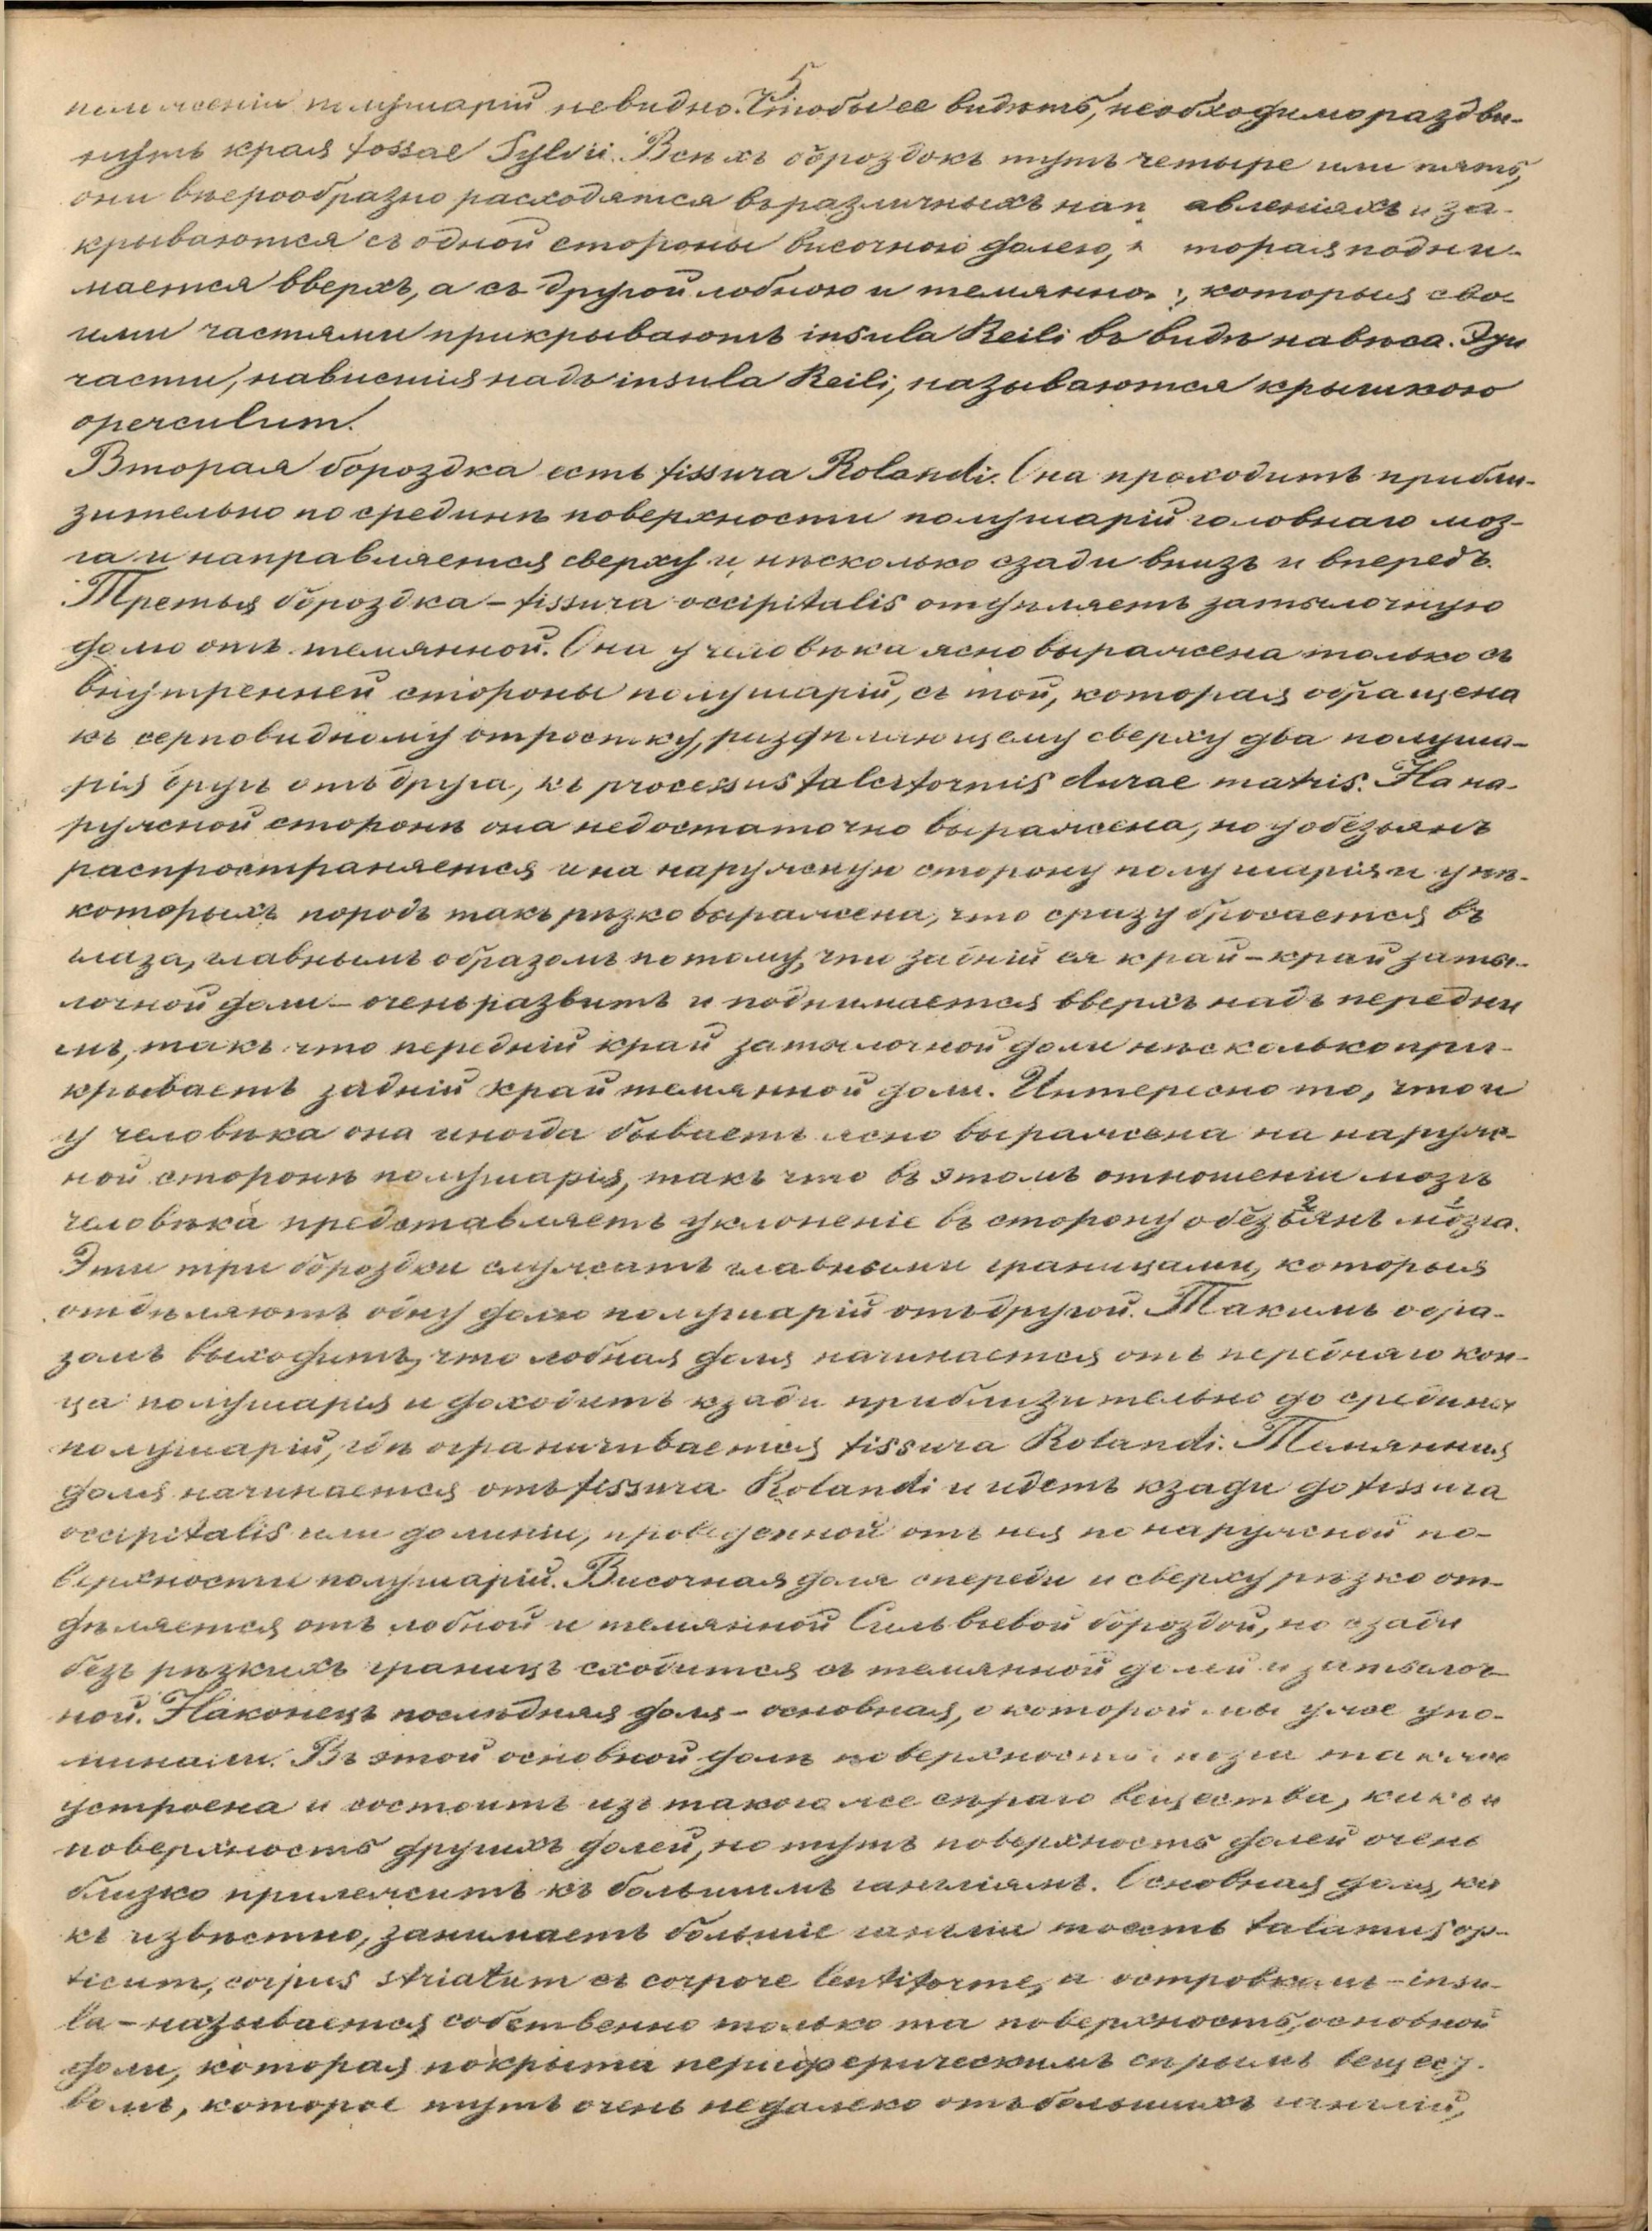 5
положеніи полушарій невидно. Чтобы ее видѣть, необходимо раздви-
нуть края fossae Sylvii. Всѣхъ бороздокъ тутъ четыре или пять,
они вѣерообразно расходятся въ различныхъ нап авленіяхъ и за-
крываются съ одной стороны височною долею, к торая подни-
мается вверхъ, а съ другой лобною и темянно , которыя сво-
ими частями прикрываютъ insula Reili въ видѣ навѣса. Эти
части, нависшія надъ insula Reili, называются крышкою
operculum.
Вторая бороздка есть fissura Rolandi. Она проходитъ прибли-
зительно по срединѣ поверхности полушарій головнаго моз-
га и направляется сверху и нѣсколько сзади внизъ и впередъ.
Третья бороздка – fissura occipitalis отдѣляетъ затылочную
долю отъ темянной. Она у человѣка ясно выражена только съ
внутренней стороны полушарій, съ той, которая обращена
къ серповидному отростку, раздѣляющему сверху два полуша-
рія другъ отъ друга, къ processus falciformis durae matris. На на-
ружной сторонѣ она недостаточно выражена, но у обезьянъ
распространяется и на наружную сторону полушарія и у нѣ-
которыхъ породъ такъ рѣзко выражена, что сразу бросается въ
глаза, главнымъ образомъ потому, что задній ея край – край заты-
лочной доли – очень развитъ и поднимается вверхъ надъ передни
мъ, такъ что передній край затылочной доли нѣсколько при-
крываетъ задній край темянной доли. Интересно то, что и
у человѣка она иногда бываетъ ясно выражена на наруж-
ной сторонѣ полушарія, такъ что въ этомъ отношеніи мозгъ
человѣка представляетъ уклоненіе въ сторону обезьянъ 2 мозга 1.
Эти три бороздки служатъ главными границами, которыя
отдѣляютъ одну долю полушарій отъ другой. Такимъ обра-
зомъ выходитъ, что лобная доля начинается отъ передняго кон-
ца полушарія и доходитъ кзади приблизительно до средины
полушарій, гдѣ ограничивается fissura Rolandi. Темянная
доля начинается отъ fissura Rolandi и идетъ кзади до fissura
occipitalis или до линіи, проведенной отъ нея по наружной по-
верхности полушарій. Височная доля спереди и сверху рѣзко от-
дѣляется отъ лобной и темянной Сильвіевой бороздой, но сзади
безъ рѣзкихъ границъ сходится съ темянной долей и затылоч
ной. Наконецъ послѣдняя доля – основная, о которой мы уже упо-
минали. Въ этой основной долѣ поверхность мозга также
устроена и состоитъ изъ такого же сѣраго вещества, какъ и
поверхность другихъ долей, но тутъ поверхность долей очень
близко прилежитъ къ большимъ гангліямъ. Основная доля, ка
къ извѣстно, занимаетъ большіе гангліи тоесть talamus op-
ticum, corpus striatum et corpore lentiforme, а островкомъ – insu-
la – называется собственно только та поверхность, основной
доли, которая покрыта периферическимъ сѣрымъ вещест-
вомъ, которое тутъ очень недалеко отъ большихъ гангліи,